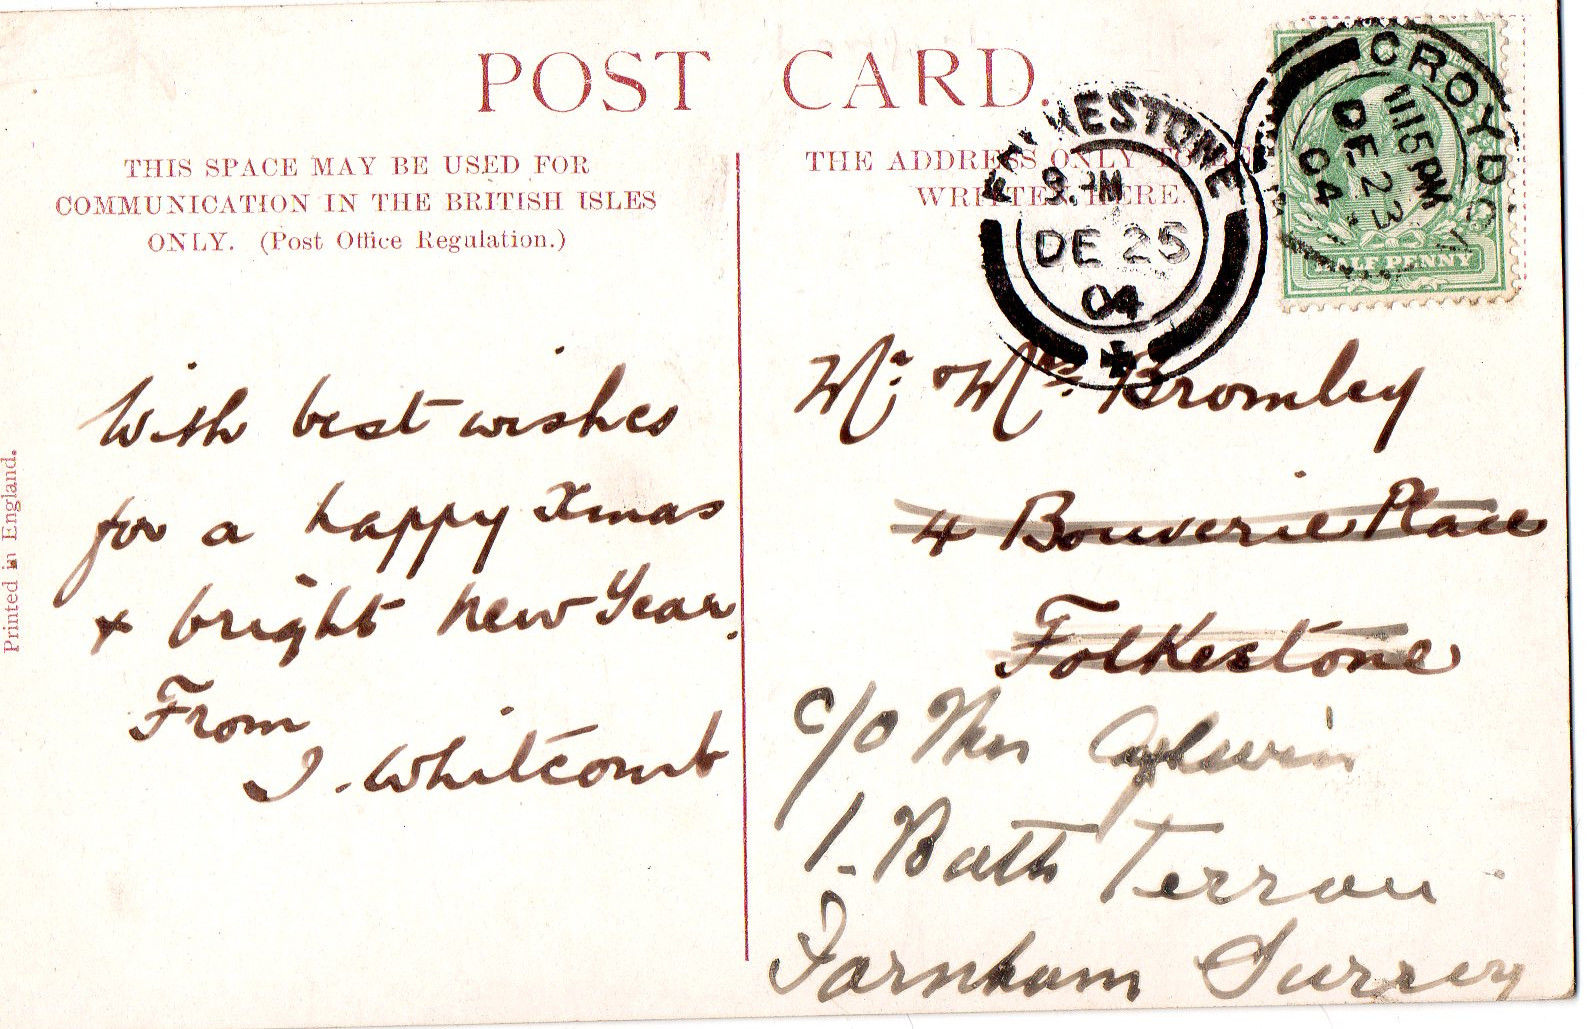 POST CARD.
THIS SPACE MAY BE USED FOR
COMMUNICATION IN THE BRITISH ISLES
ONLY. (Post Office Regulation.)
Printed in England.
With best wishes
for a happy Xmas
& bright New Year.
From
J. Whitcomb
THE ADDRESS ONLY TO BE
WRITTEN HERE.
FOLKESTONE
9. AM
DE 25
04
CROYDON
11 15 PM
DE 23
04
HALF PENNY
Mr. & Mrs. Bromley
4 Bouverie Place
Folkestone
c/o Mrs
1. Bath Terrace
Farnham Surrey